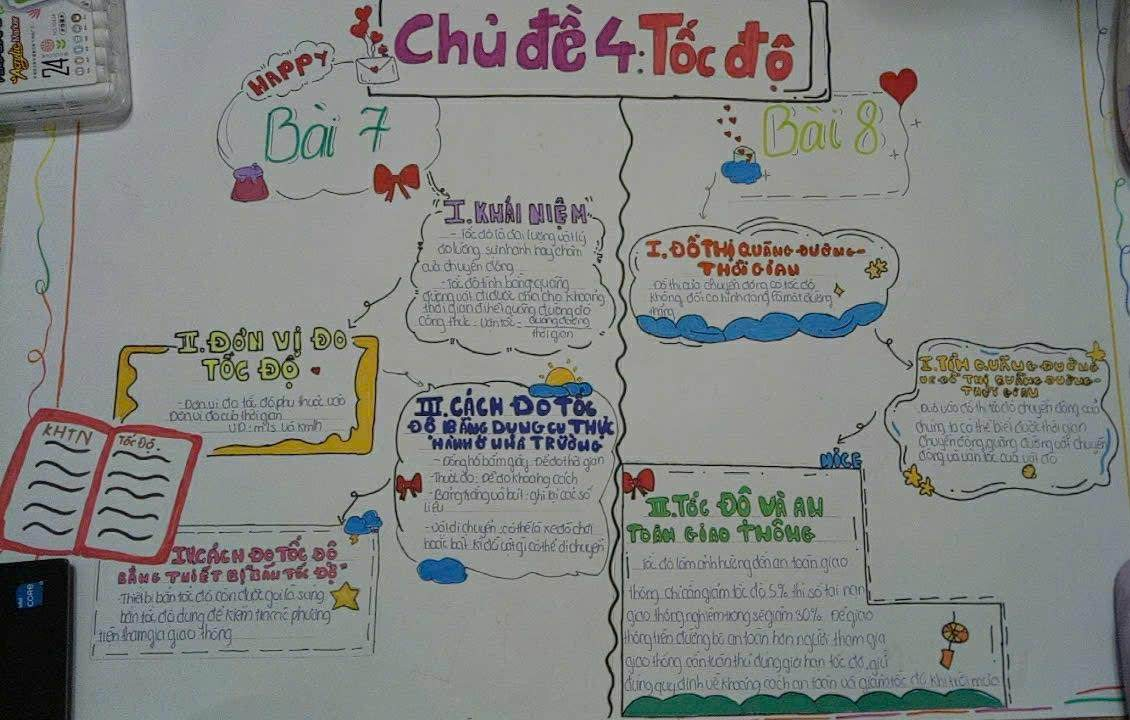 Acrylic Marker
24
Chủ đề 4: Tốc độ
HAPPY
Bài 7
I. KHÁI NIỆM
- Tốc độ là đại lượng vật lý
đo lường sự nhanh hay chậm
của chuyển động
- Tốc độ tính bằng quãng
đường vật đi được chia cho khoảng
thời gian đi hết quãng đường đó
công thức: vận tốc = quãng đường
thời gian
II. ĐƠN VỊ ĐO
TỐC ĐỘ
- Đơn vị đo tốc độ phụ thuộc vào
Đơn vị đo của thời gian
VD: m/s và km/h
III. CÁCH ĐO TỐC
ĐỘ BẰNG DỤNG CỤ THỰC
HÀNH Ở NHÀ TRƯỜNG
- Đồng hồ bấm giây: Để đo thời gian
- Thước đo: Để đo khoảng cách
- Bảng trắng và bút: ghi lại các số
liệu
- Vật di chuyển: có thể là xe đồ chơi
hoặc bất kì đồ vật gì có thể di chuyển
KHTN
TỐC ĐỘ.
IV. CÁCH ĐO TỐC ĐỘ
BẰNG THIẾT BỊ "BẮN TỐC ĐỘ"
- Thiết bị bắn tốc độ còn được gọi là súng
bắn tốc độ dùng để kiểm tra các phương
tiện tham gia giao thông
intel
CORE
Bài 8
I. ĐỒ THỊ QUÃNG ĐƯỜNG-
THỜI GIAN
Đồ thị của chuyển động có tốc độ
không đổi có hình dạng là một đường
thẳng
I. TÌM QUÃNG ĐƯỜNG
ĐỒ THỊ QUÃNG ĐƯỜNG-
THỜI GIAN
Dựa vào đồ thị tốc độ chuyển động của
chúng ta có thể biết được thời gian
chuyển động, quãng đường vật chuyển
động và vận tốc của vật đó
NICE
II. TỐC ĐỘ VÀ AN
TOÀN GIAO THÔNG
Tốc độ làm ảnh hưởng đến an toàn giao
thông. Chỉ cần giảm tốc độ 5% thì số tai nạn
giao thông nghiêm trọng sẽ giảm 30%. Để giao
thông trên đường bộ an toàn hơn người tham gia
giao thông cần tuân thủ đúng giới hạn tốc độ, giữ
đúng quy định về khoảng cách an toàn và giảm tốc độ khi trời mưa